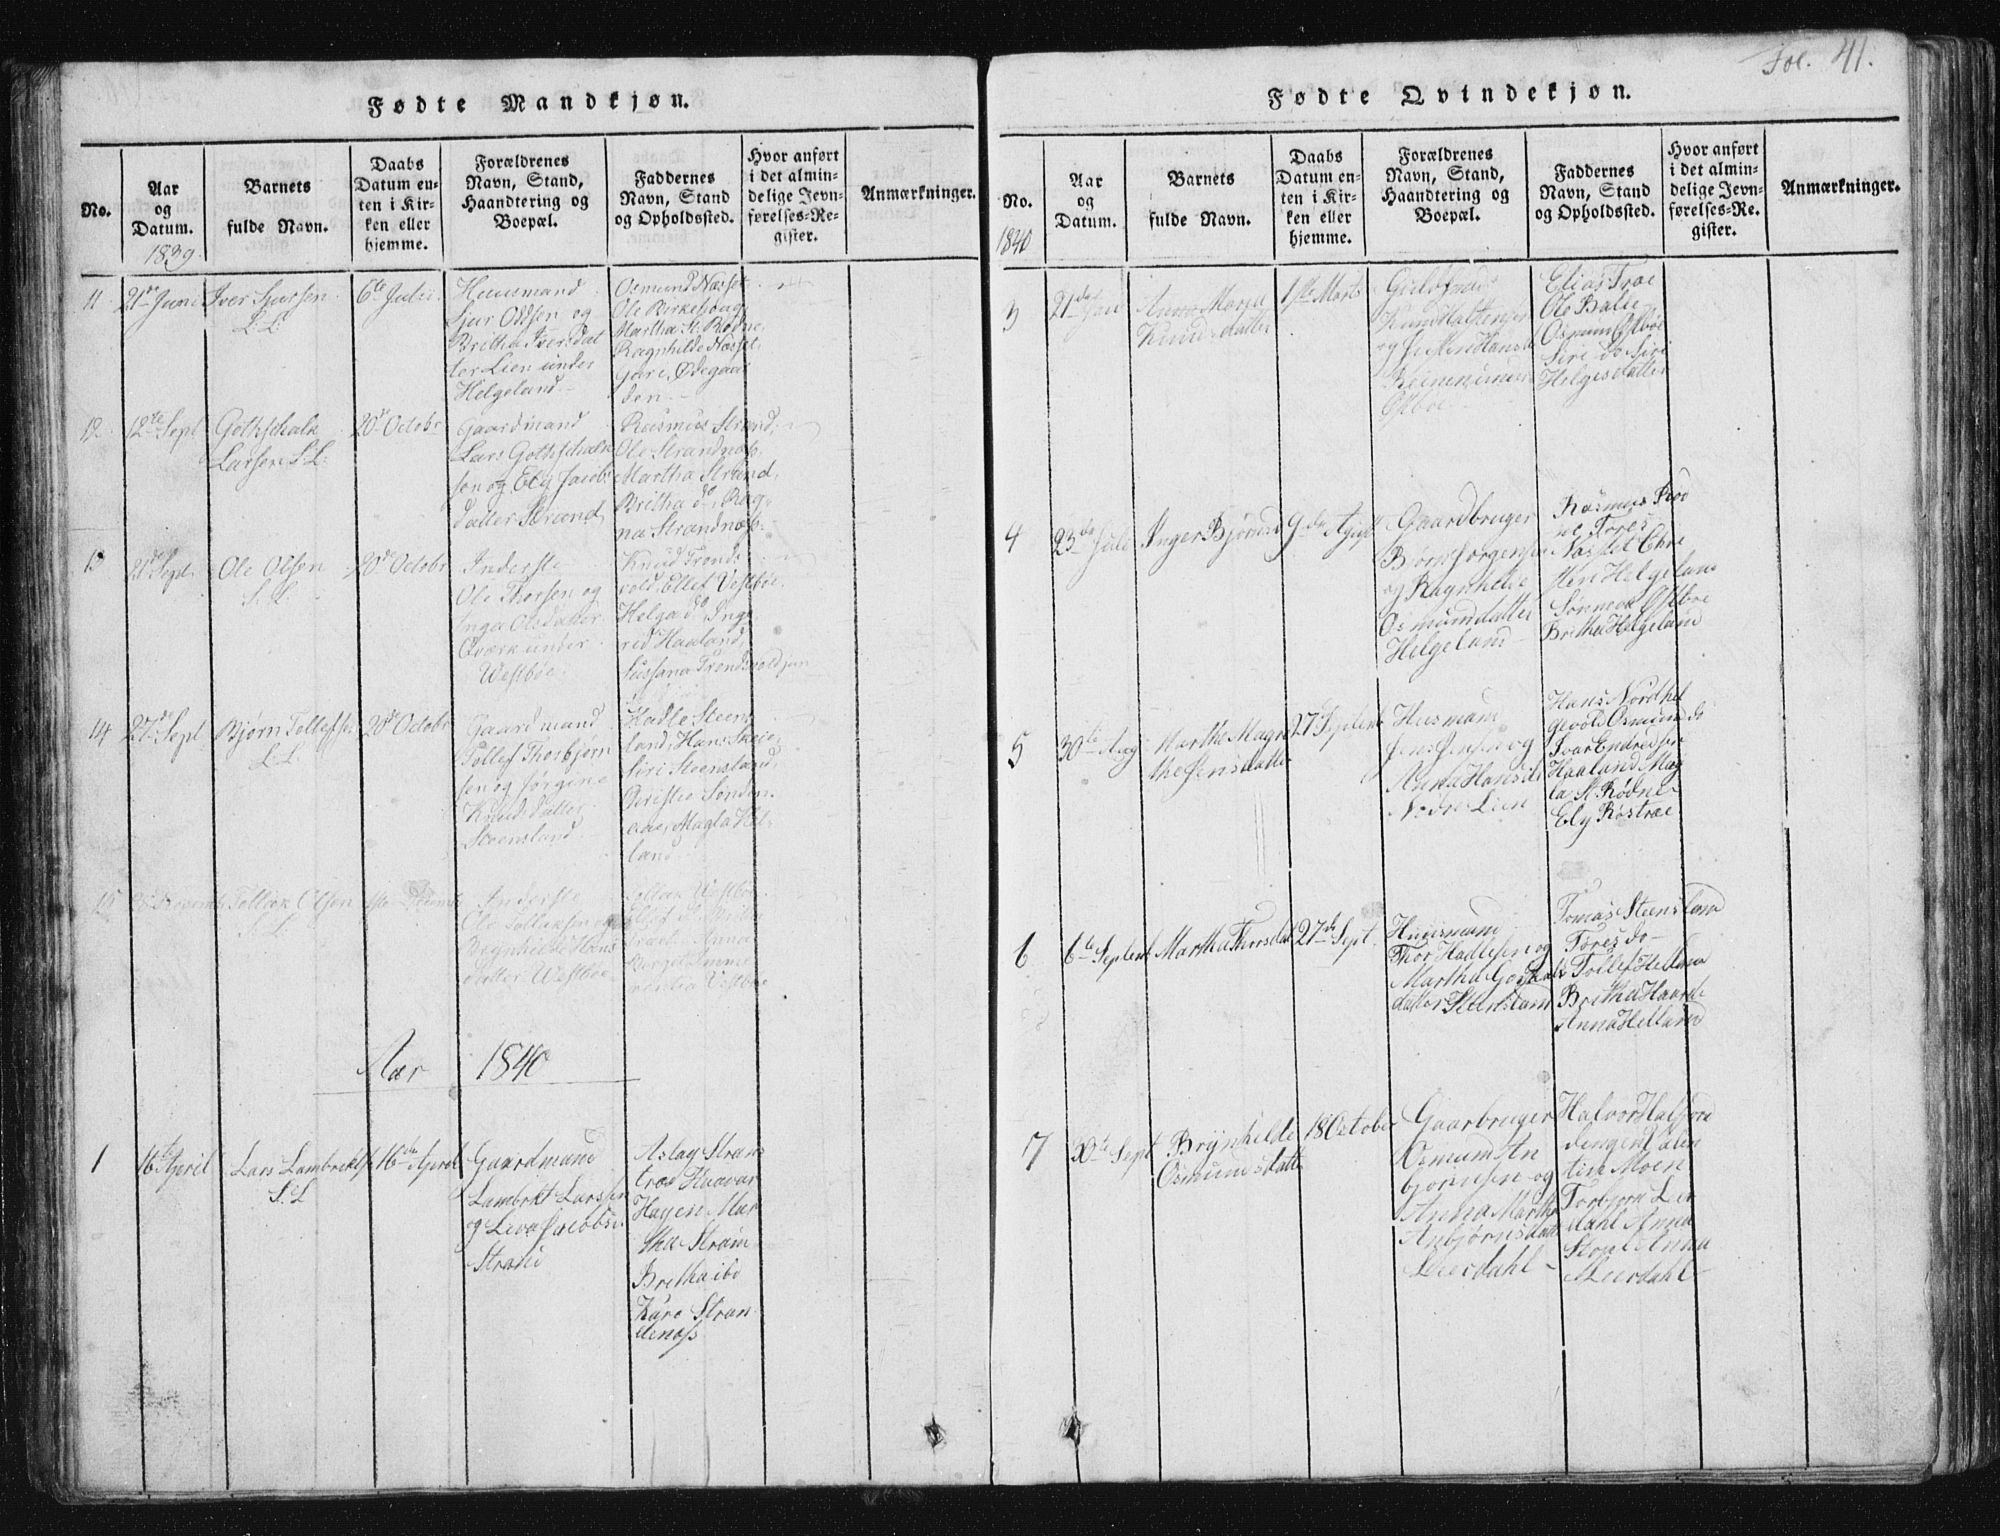 Fødte Mandkjøn.
No.
Aar
og
Datum.
1839
Barnets
fulde Navn.
Daabs
Datum en-
ten i Kir-
ken eller
hjemme.
Forældrenes
Navn, Stand,
Haandtering og
Boepæl.
Faddernes
Navn, Stand
og Opholdssted.
Hvor anført
i det almin-
delige Jevn-
førelses-Re-
gister.
Anmærkninger.
11
21de Juni
Iver Sjursen
L.L.
6te Julii
Huusmand
Sjur Oldsen og
Britha Iversdat
ter Lien under
Helgeland
Osmund Næsset
Ole Birkehoug
Martha St. Rødne
Ragnhilde Næsset
Gare, Ødegaar
den
12
12te Sept
Gothschalk
Larsen L.L.
20de Octobr
Gaardmand
Lars Gothschalk
sen og Ely Jacobs
datter Strand
Rasmus Strand,
Ole Strandnæss
Martha Strand,
Britha do, Rag
na Strandnæss
13
21de Sept
Ole Olsen
L.L.
20de Octobr
Inderste
Ole Thorsen og
Inga Olsdatter
Qværk under
Westbøe
Knud Tronds
vold, Ellef Vestbøe
Helga do, Inge
rid Haaland,
Sussana Trondsvold
14
27de Sept
Bjørn Tollefse
L.L.
20de Octobr
Gaardmand
Tollef Thorbjørn
sen og Jørgine
Knudsdatter
Steensland
Hadle Steens
land, Hans Skeie
Siri Steensland,
Magla Hel
land
15
Tollak Olsen
L.L.
Inderste
Ole Tollaksen og
Brynhilde Hans
datter Westbøe
Tollak Vestbøe
Anna
Vestbøe
Aar 1840
1
16te April
Lars Lambrektse
S.L
16de April
Gaardmand
Lambrekt Larssen
og Liva Jacobsd.
Strand
Aslag Stran
træ Haavar
Høyen Mar
tha Strain
Britha ibd
Kare Stran
denæss
Fol. 41.
Fødte Qvindekjøn.
No.
1840
Aar
og
Datum.
Barnets
fulde Navn.
Daabs
Datum en-
ten i Kir-
ken eller
hjemme.
Forældrenes
Navn, Stand,
Haandtering og
Boepæl.
Faddernes
Navn, Stand
og Opholdssted.
Hvor anført
i det almin-
delige Jevn-
førelses-Re-
gister.
Anmærkninger.
3
21de Jan
Anna Maria
Knudsdatter
1ste Marts
Østbøe
Elias Træ
Ole Balle
Osmun Østbøe
Siri do Siri
Helgesdatter
4
23de Juli
Inger Bjørnsd
9de Agust
Gaardbruger
Bjørn Jørgensen
og Ragnhile
Osmundatter
Helgeland
Rasmus Rød
ne Tores
Næsset Chre
sten Helgelan
Sønneva Østbøe
Britha Helgeland
5
30te Aug
Marthe Magre
the Jensdatter
27 Septemb
Huusmand
Jens Jensen og
Anna Hansd
Nedre Lien
Hans Nordhel
gevold Osmund do
Ivar Endresen
Haaland Mag
la St. Rødne
Ely Røstræe
6
6te Septemb
Martha Thorsdat
27de Sept.
Huusmand
Thor Hadlesen og
Martha Gotskalk
datter Steensland
Tomas Steensland
Tores do
Tollef Helland
Britha Haarde
Anna Helland
7
30te Sept
Brynhilde
Osmundsdatte
18 October
Gaarbruger
Osmum An
bjørnsen og
Anna Martha
Anbjørnsdatt
Leerdahl
Halvor Halfore
dengen Valen
tin Moen
Torbjørn Leir
dahl Anna
Stople Anna
Leerdahl